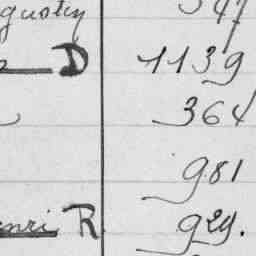 gustin 547
D 1139
364
981
enri R 929.